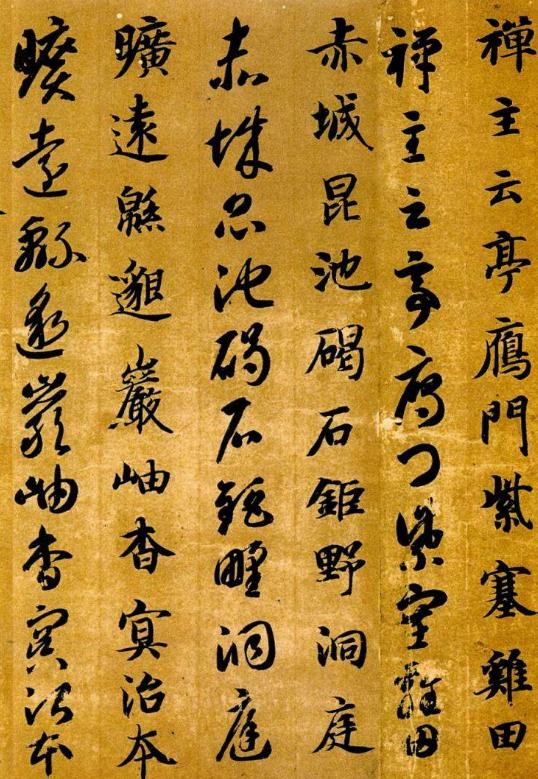 禪主云亭鴈門紫塞雞田
禪主云亭鴈門紫塞雞田
赤城昆池碣石鉅野洞庭
赤城昆池碣石鉅野洞庭
曠遠緜邈巖岫杳冥治本
曠遠緜邈巖岫杳冥治本